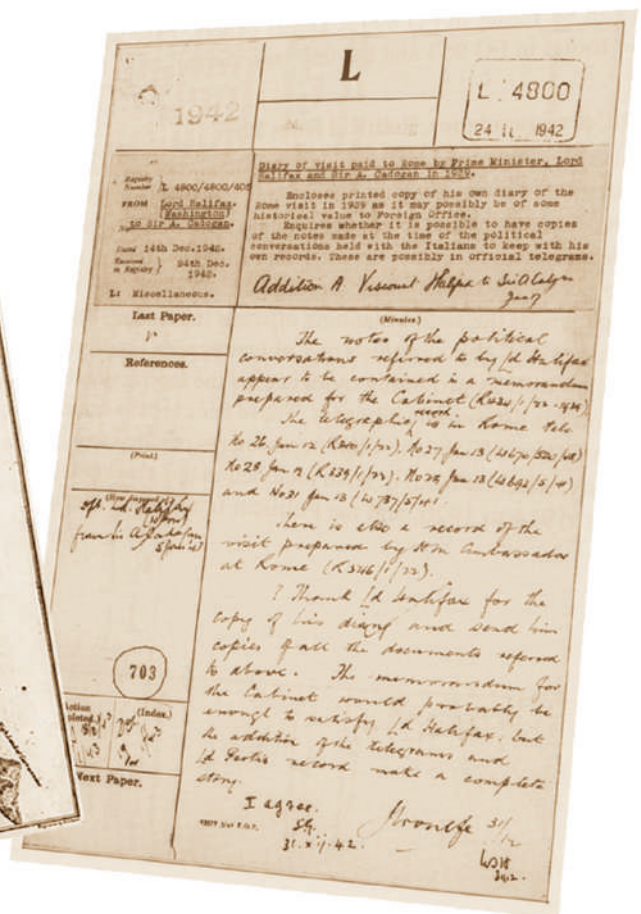 1942
L
L 4800
24 1942
Registry Number
L 4800/4800/405
FROM Lord Halifax.
(Washington)
to Sir A. Cadogan.
Dated 14th Dec. 1942.
Received in Registry
24th Dec. 1942.
L: Miscellaneous.
Diary of visit paid to Rome by Prime Minister, Lord
Halifax and Sir A. Cadogan in 1939.
Encloses printed copy of his own diary of the
Rome visit in 1939 as it may possibly be of some
historical value to Foreign Office.
Enquires whether it is possible to have copies
of the notes made at the time of the political
conversations held with the Italians to keep with his
own records. These are possibly in official telegrams.
Addition A. Viscount Halifax to Sir A Cadogan
Last Paper.
References.
(Print)
(How disposed of)
703
Action
(Index.)
Next Paper.
(Minutes.)
The notes of the political
conversations referred to by Ld Halifax
appear to be contained in a memorandum
prepared for the Cabinet
The telegraphic record is in Rome tels
No 26 Jan 12 No 27 Jan 13
No 28 Jan 13 (R339/1/22).
and No 31 Jan 13
There is also a record of the
visit prepared by HM Ambassador
at Rome
? Thank Ld Halifax for the
copy of his diary and send him
copies of all the documents referred
to above. The memorandum for
the Cabinet would probably be
enough to satisfy Ld Halifax, but
the addition of the telegrams and
Ld Perth's record make a complete
story.
I agree.